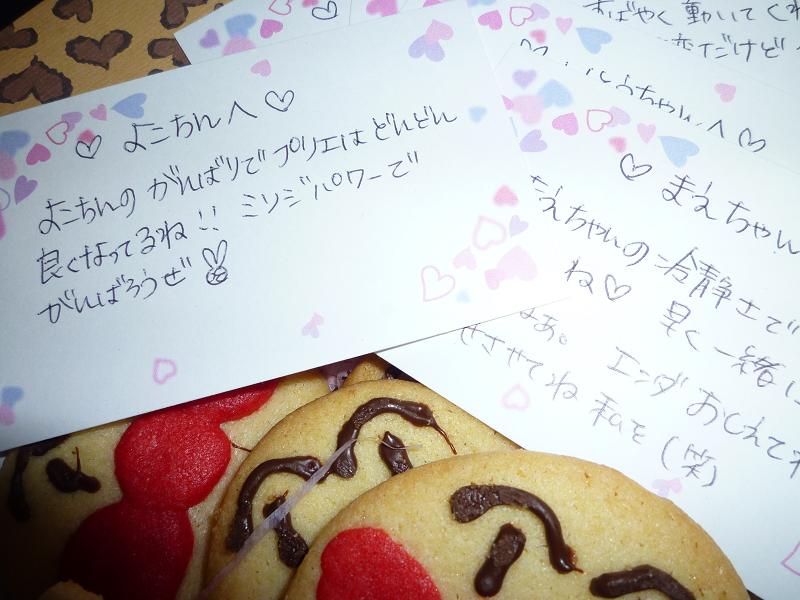 ♡ よこちんへ ♡
よこちんの がんばりで プリエは どんどん
良くなってるね!! ミソジパワーで
がんばろうぜ
すばやく 動いてくれ
だけど
ちゃんへ ♡
♡ まえちゃん
えちゃんの 冷静さで
ね♡ 早く一緒に
なあ。 エンダ おしえてね
させてね 私を (笑)